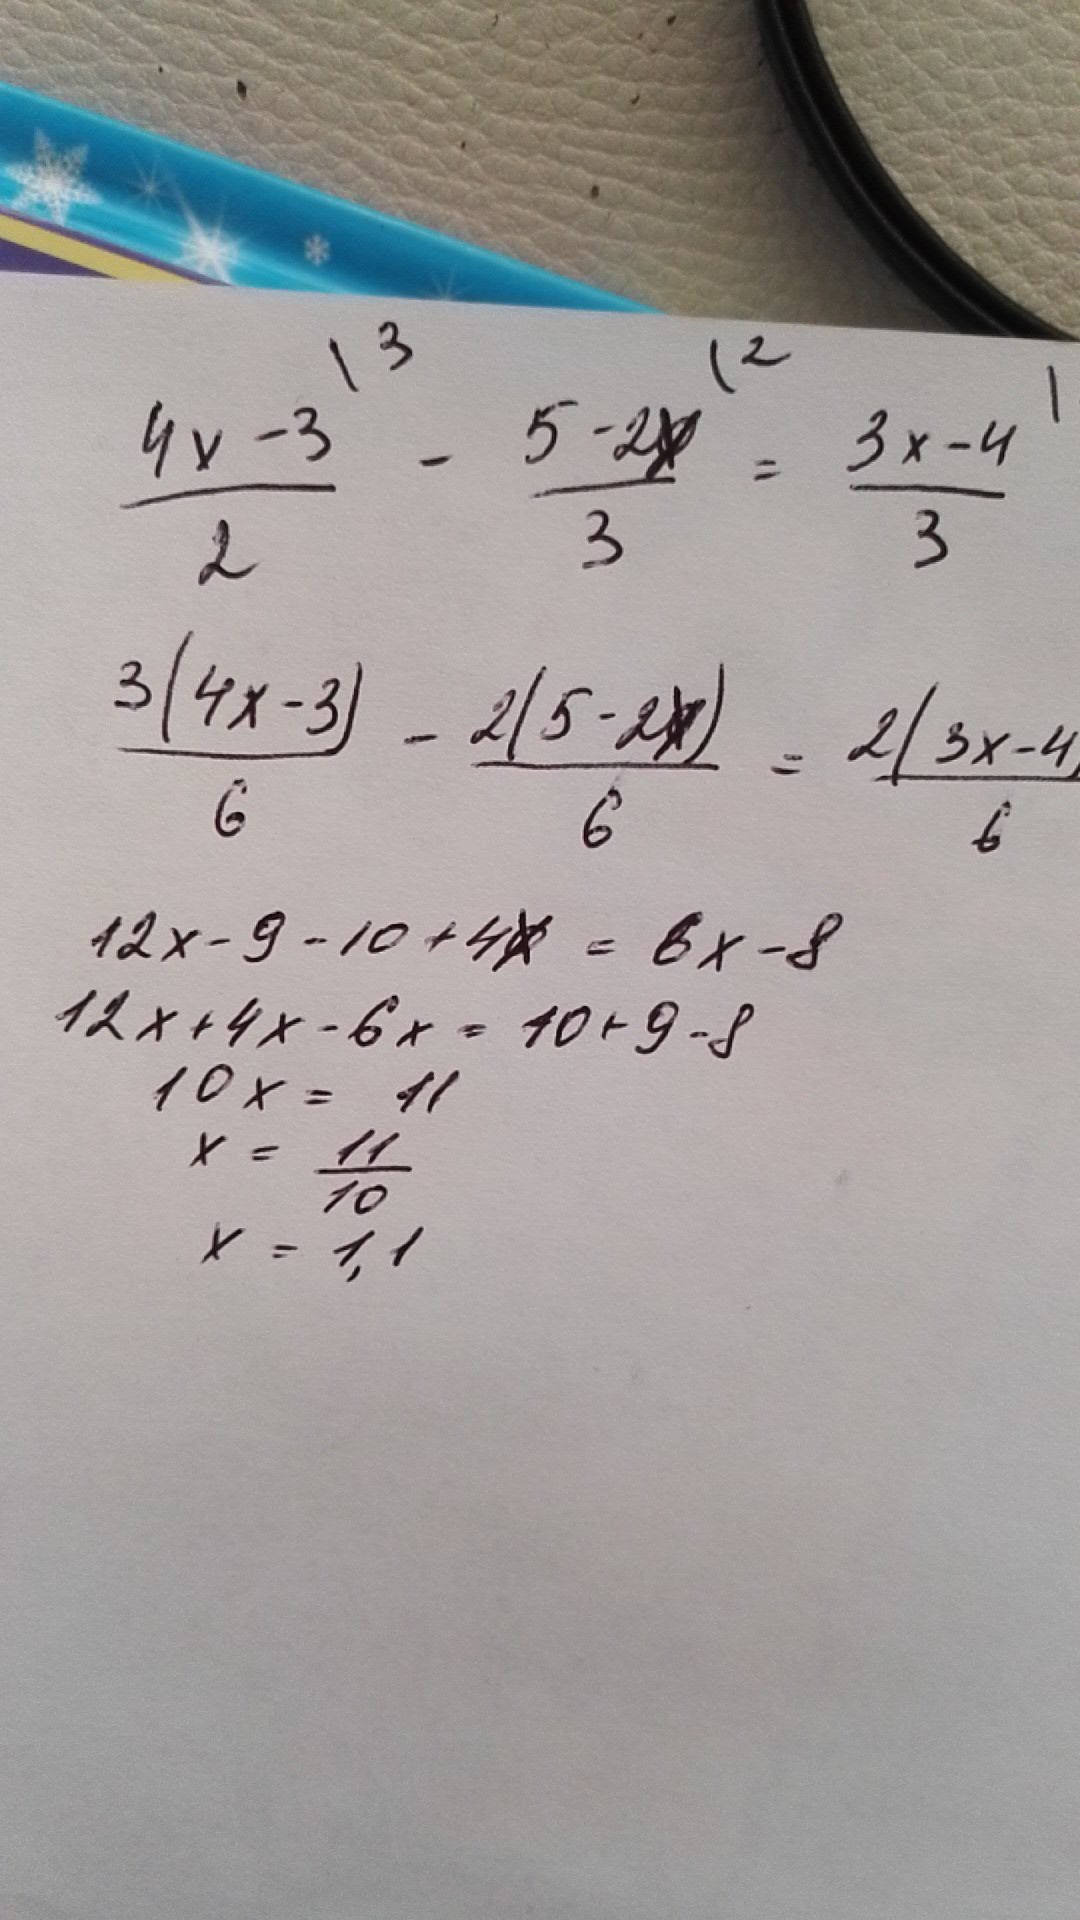 \3 \2 \
4x-3/2 - 5-2x/3 = 3x-4/3
3(4x-3)/6 - 2(5-2x)/6 = 2(3x-4)/6
12x-9-10+4x = 6x-8
12x+4x-6x = 10+9-8
10x = 11
x = 11/10
x = 1,1